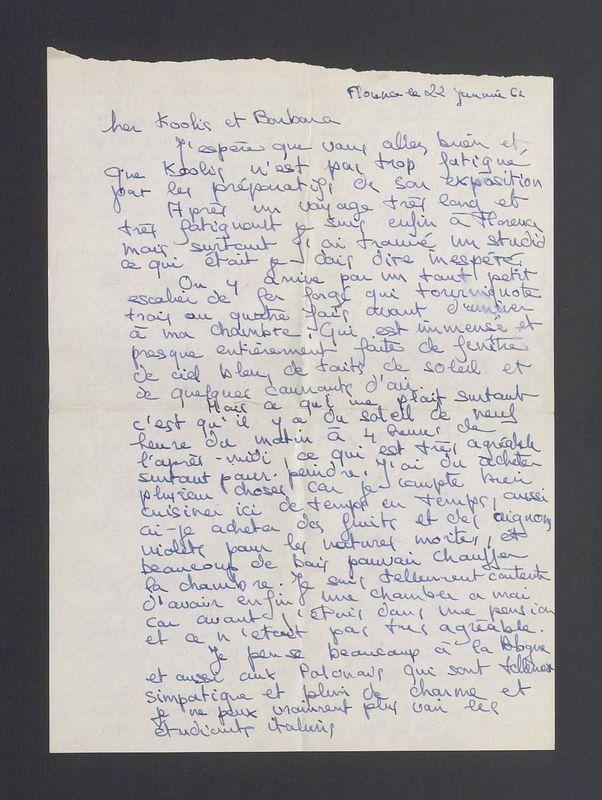 Florence le 22 janvier 62
cher Koolis et Barbara
J'espère que vous allez bien et
que Koolis n'est pas trop fatigué
par les préparatifs de son exposition
Après un voyage très long et
très fatiguant je suis enfin à Florence
mais surtout j'ai trouvé un studio
ce qui était je dois dire inespéré.
On y arrive par un tout petit
escalier de fer forgé qui tourniquote
trois ou quatre fois avant d'arriver
à ma chambre. Qui est immense et
presque entièrement faite de fenêtre
de ciel bleu, de toits de soleil et
de quelques courants d'air.
Mais ce qui me plait surtout
c'est qu'il y a du soleil de neuf
heure du matin à 4 heures de
l'après-midi, ce qui est très agréable
surtout pour peindre. J'ai du acheter
plusieur choses car je compte bien
cuisiner ici de temps en temps, aussi
ai-je acheter des fruits et des oignons
violets pour les natures mortes, et
beaucoup de bois pouvoir chauffer
la chambre. Je suis tellement contente
d'avoir enfin une chambre a moi
car avant j'étais dans une pension
et ce n'etait pas très agréable.
Je pense beaucoup à la Pologne
et aussi aux Polonais qui sont tellement
simpatique et plein de charme et
je ne peux vraiment plus voir les
étudiants italiens